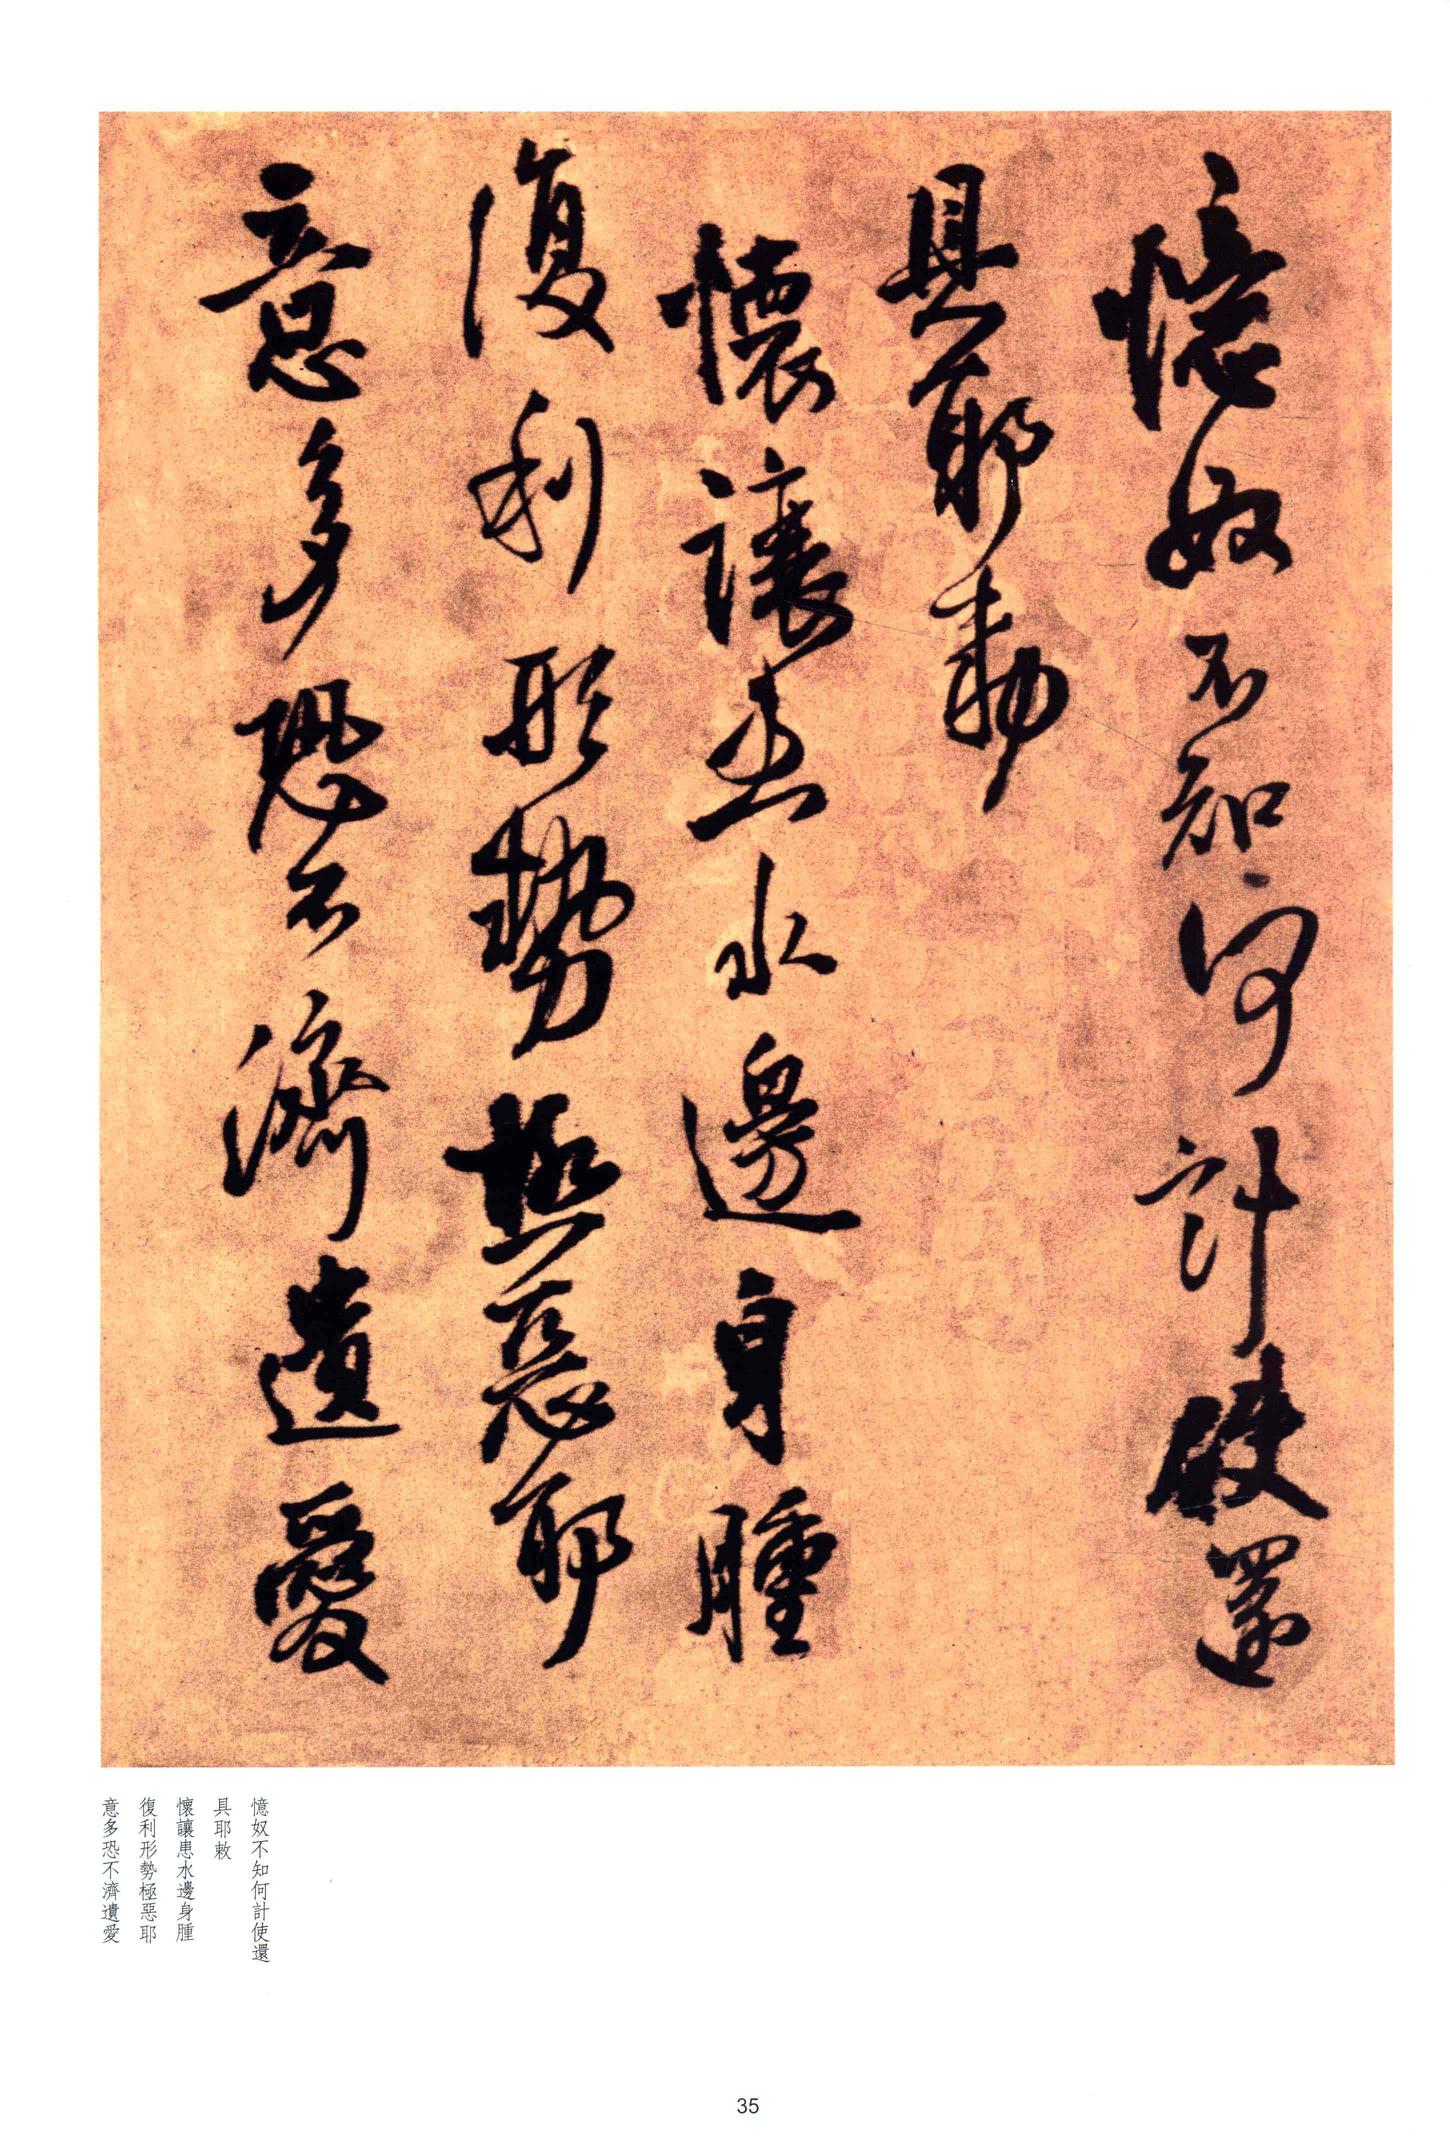 憶奴不知何計使還
具耶敕
懷讓患水邊身腫
復利形勢極惡耶
意多恐不濟遺愛
憶奴不知何計使還
具耶敕
懷讓患水邊身腫
復利形勢極惡耶
意多恐不濟遺愛
35